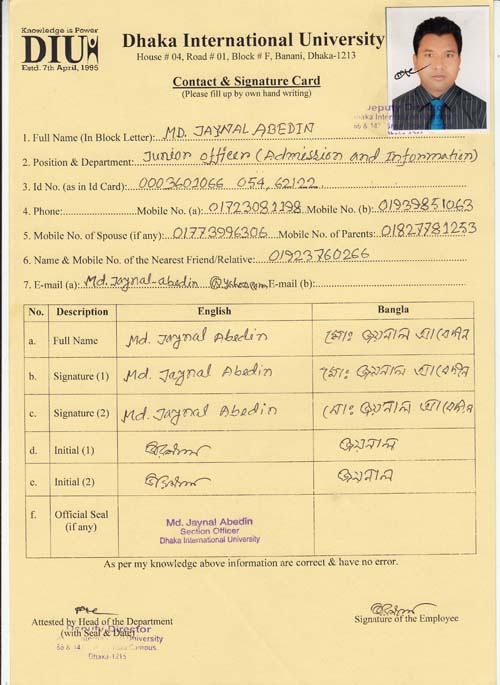 Knowledge is Power
DIU
Estd. 7th April, 1995
Dhaka International University
House # 04, Road # 01, Block # F, Banani, Dhaka-1213
Contact & Signature Card
(Please fill up by own hand writing)
Deputy Director
1. Full Name (In Block Letter): MD. JAYNAL ABEDIN
2. Position & Department: Junior officer (Admission and Information)
3. Id No. (as in Id Card): 0003601066 054, 62122
4. Phone: Mobile No. (a): 01723081198 Mobile No. (b): 01939851063
5. Mobile No. of Spouse (if any): 01773996306 Mobile No. of Parents: 01827781253
6. Name & Mobile No. of the Nearest Friend/Relative: 01923760266
7. E-mail (a): Md.Jaynal-abedin @yahoo.com E-mail (b):
No. Description English Bangla
a. Full Name Md. Jaynal Abedin মোঃ জয়নাল আবেদীন
b. Signature (1) Md. Jaynal Abedin মোঃ জয়নাল আবেদীন
c. Signature (2) Md. Jaynal Abedin মোঃ জয়নাল আবেদীন
d. Initial (1) জয়নাল
e. Initial (2) জয়নাল
f. Official Seal
(if any)
Md. Jaynal Abedin
Section Officer
Dhaka International University
As per my knowledge above information are correct & have no error.
Attested by Head of the Department
(with Seal & Date)
Deputy Director
University
Campus.
Dhaka-1215
Signature of the Employee